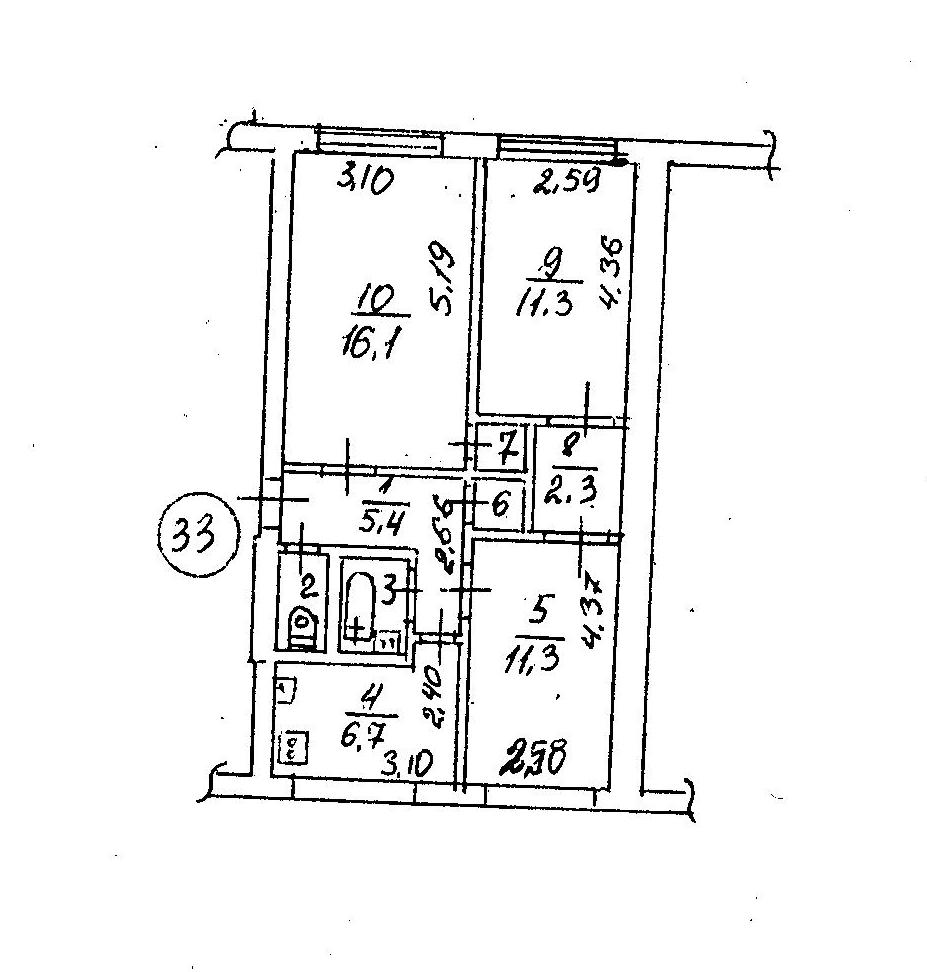 3,10
2,59
5.19
9
11.3
4.36
10
16,1
7
8
2.3
1
5.4
2.66
6
33
2
3
5
11,3
4.37
4
6.7
2,40
3,10
2,58